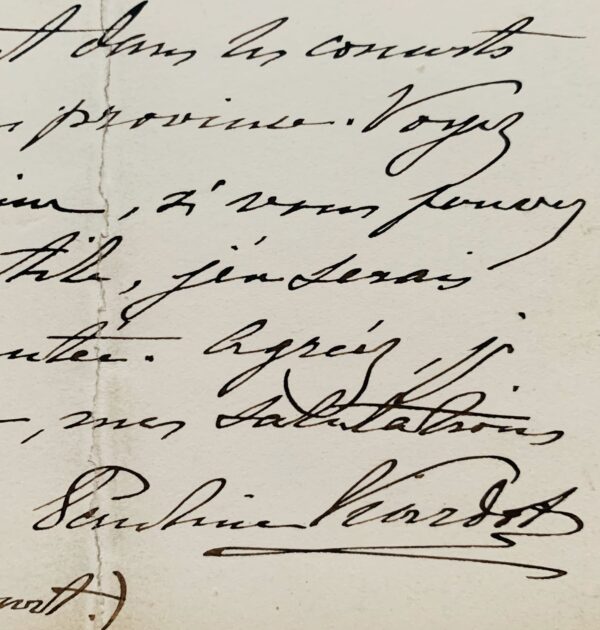 t dans les concerts
province. Voyez
, si vous pouvez
tile, j'en serais
ntée. Agréez, je
, mes salutations
Pauline Viardot
ourt.)